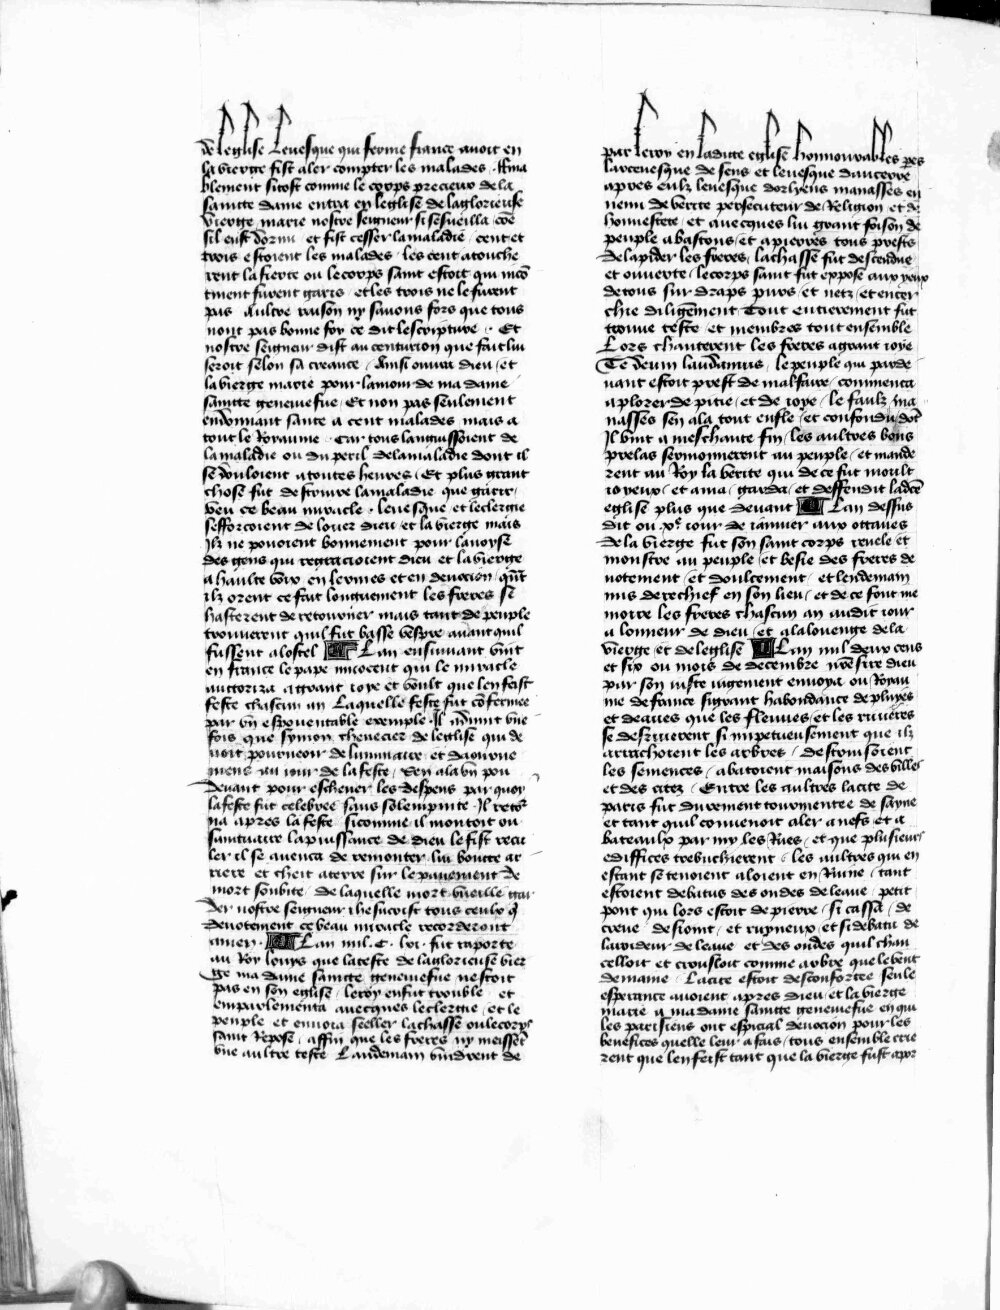 de leglise Leuesque qui ferme france auoit en
la vierge fist aler compter les malades . Ama
blement sitost comme le corps precieux de la
saincte dame entra en leglise de la glorieuse
vierge marie nostre seigneur si sesueilla cõe
sil eust dormi / et fist cesser la maladie / cent et
trois estoient les malades / les cent atouche
rent la fierte ou le corps saint estoit qui incõ
tinent furent garis / et les trois ne le furent
pas Aultre raison ny sauons fors que tous
nont pas bonne foy ce dit lescripture . Et
nostre seigneur dist au centurion que fait lui
seroit selon sa creance / Ainsi ouura dieu / et
la vierge marie pour lamour de ma dame
saincte geneuiefue / Et non pas seulement
en donnant sante a cent malades mais a
tout le Royaume . Car tous languissoient de
la maladie ou du peril de la maladie dont il
se douloient a toutes heures / Et plus grant
chose fut destruire la maladie que garir
veu ce beau miracle . leuesque / et le clergie
sefforcoient de louer dieu / et la vierge mais
Ilz ne pouoient bonnement pour la noyse
des gens qui regracioient dieu et la vierge
a haulte voix en lermes et en deuocion / quãt
ilz orent ce fait longuement les freres se
hasterent de retourner mais tant de peuple
trouuerent quil fut basse vespre auant quil
fussent a lostel Lan ensuiuant vint
en france le pape innocent qui le miracle
auctoriza a grant ioye et voult que len feist
feste chascun an Laquelle feste fut cõfermee
par vn espouentable exemple . Il aduint vne
fois que symon cheuecier de leglise qui de
uoit pourueoir de luminaire et daourne
mens au iour de la feste / sen ala vn pou
deuant pour escheuer les despens par quoy
la feste fut celebree sans solempnite . Il retor
na apres la feste si comme il montoit ou
sanctuaire la puissance de dieu le fist recu
ler il se auenca de remonter lui boutte ar
riere et cheit a terre sur le pauement de
mort soubite / de laquelle mort vueille gar
der nostre seigneur ihesucrist tous ceulx q̃
deuotement ce beau miracle recorderont
amen . Lan mil . C . lxi . fut raporte
au Roy louys que la teste de la glorieuse vier
ge ma dame saincte geneuiefue nestoit
pas en son eglise / le roy en fut trouble / et
emparlementa auecques le clergie / et le
peuple et enuoia seeller la chasse ou le corps
saint Repose / affin que les freres ny meissẽt
vne aultre teste Landemain vindrent de
par le roy en ladicte eglise honnourables peres
larceuesque de sens et leuesque daucerre
apres eulz leuesque dorliens manasses en
nemi de verite persecuteur de Religion et de
honnestete / et auecques lui grant foison de
peuple a bastons / et a pierres tous prestz
de lapider les freres / la chasse fut descendue
et ouuerte / le corps saint fut expose aux yeux
de tous sur draps purs / et netz / et encer
chie diligemment Tout entierement fut
trouue teste / et membres tout ensemble
Lors chanterent les freres a grant ioye
Te deum laudamus / le peuple qui parde
uant estoit prest de malfaire / commenca
a plorer de pitie / et de ioye / le faulz ma
nasses sen ala tout enfle / et confondu dõt
Il vint a meschante fin / les aultres bons
prelas sermonnerent au peuple / et mande
rent au Roy la verite qui de ce fut moult
ioyeux / et ama / garda / et deffendit ladcte
eglise plus que deuant Lan dessus
dit ou xe. iour de ianuier aux ottaues
de la vierge fut son saint corps reuele et
monstre au peuple / et besie des freres de
uotement / et doulcement / et lendemain
mis derechief en son lieu / et de ce font me
moire les freres chascun an audit iour
a lonneur de dieu / et a la louenge de la
vierge et de leglise Lan mil deux cens
et six ou mois de decembre nrẽ sire dieu
par son iuste iugement enuoya ou Royau
me de france si grant habondance de pluyes
et deaues que les fleuues / et les riuieres
se desriuerent si impetueusement que ilz
arrachoient les arbres / destruisoient
les semences / abatoient maisons des villes
et des citez / Entre les aultres la cite de
paris fut durement tourmentee de sayne
et tant quil conuenoit aler a nefs et a
bateaulx par my les Rues / et que plusieurs
edifices trebucherent / les aultres qui en
estant se tenoient aloient en Ruine / tant
estoient debatus des ondes de leaue / petit
pont qui lors estoit de pierre / si cassa / de
creue desioint / et ruyneux / et si debatu de
la roideur de leaue et des ondes quil chan
celloit et crousloit comme arbre que le vent
demaine / La cite estoit desconfortee seule
esperance auoient apres dieu / et la vierge
marie a ma dame saincte geneuiefue en qui
les parisiens ont especial deuocion pour les
benefices quelle leur a fais / tous ensemble crie
rent que len feist tant que la vierge fust apor